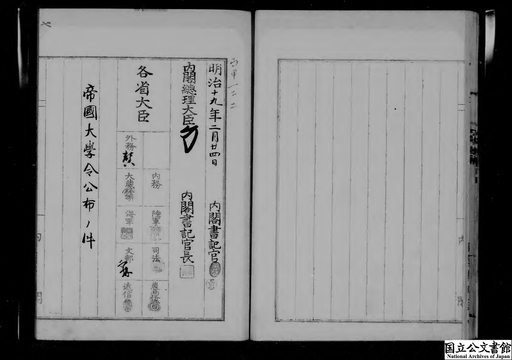 明治十九年二月廿四日
内閣書記官
内閣總理大臣
内閣書記官長
各省大臣
内務
陸軍
司法
農商務
外務
大藏
海軍
文部
遞信
帝國大學令公布ノ件
国立公文書館
National Archives of Japan